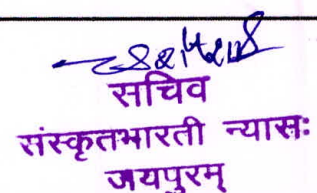 सचिव
संस्कृतभारती न्यासः
जयपुरम्